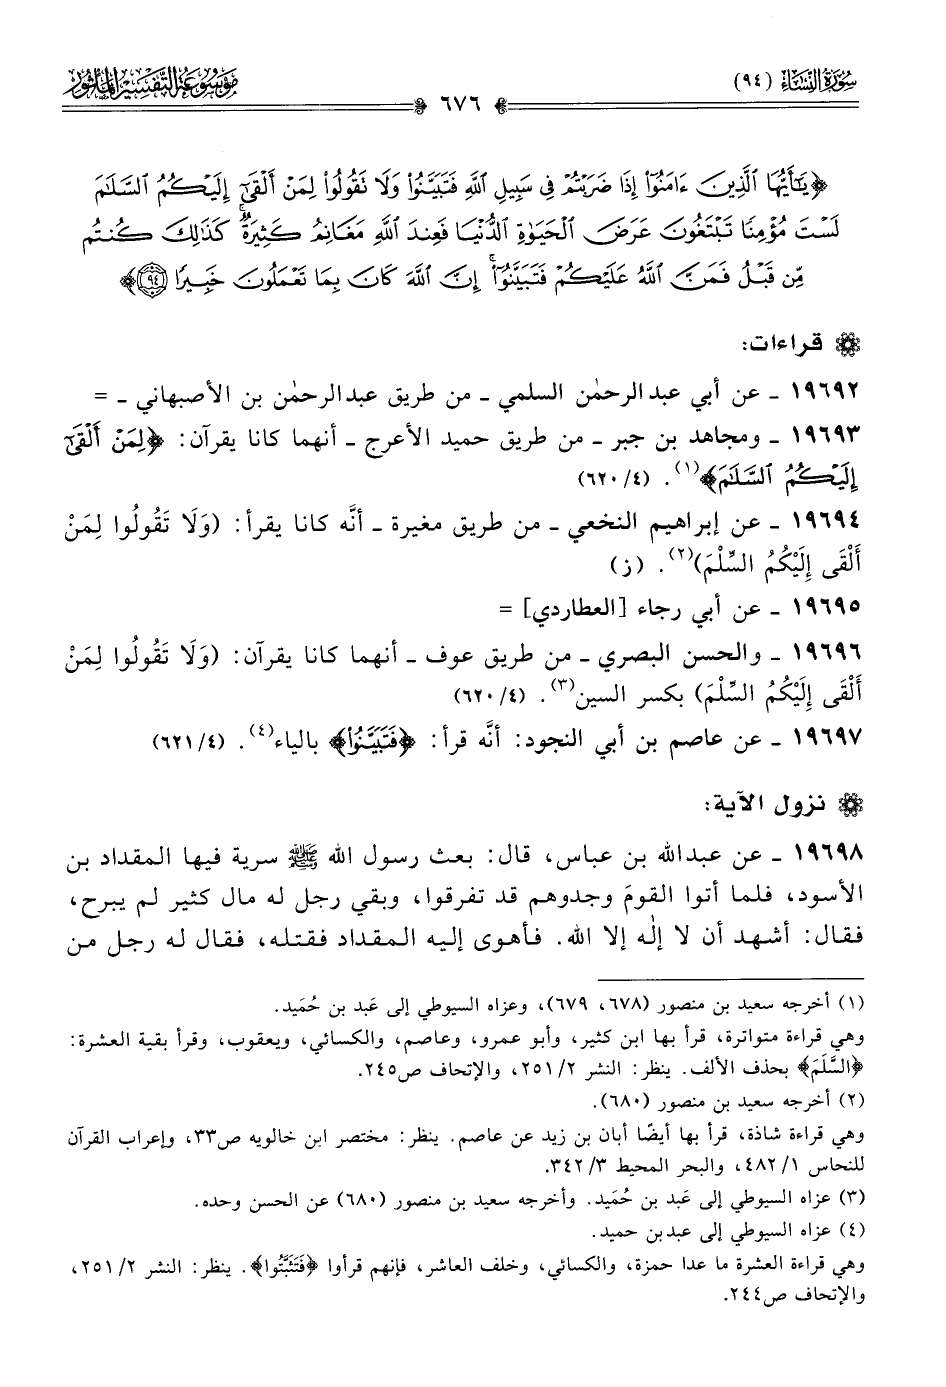 سُورَةُ النِّسَاءِ (٩٤)
٦٧٦
مَوْسُوعَةُ التَّفْسِيرِ المَأْثُورِ
﴿يَٰٓأَيُّهَا ٱلَّذِينَ ءَامَنُوٓاْ إِذَا ضَرَبۡتُمۡ فِي سَبِيلِ ٱللَّهِ فَتَبَيَّنُواْ وَلَا تَقُولُواْ لِمَنۡ أَلۡقَىٰٓ إِلَيۡكُمُ ٱلسَّلَٰمَ
لَسۡتَ مُؤۡمِنٗا تَبۡتَغُونَ عَرَضَ ٱلۡحَيَوٰةِ ٱلدُّنۡيَا فَعِندَ ٱللَّهِ مَغَانِمُ كَثِيرَةٞۚ كَذَٰلِكَ كُنتُم
مِّن قَبۡلُ فَمَنَّ ٱللَّهُ عَلَيۡكُمۡ فَتَبَيَّنُوٓاْۚ إِنَّ ٱللَّهَ كَانَ بِمَا تَعۡمَلُونَ خَبِيرٗا ٩٤﴾
قراءات:
١٩٦٩٢ ـ عن أبي عبدالرحمٰن السلمي ـ من طريق عبدالرحمٰن بن الأصبهاني ـ =
١٩٦٩٣ ـ ومجاهد بن جبر ـ من طريق حميد الأعرج ـ أنهما كانا يقرآن: ﴿لِمَنۡ أَلۡقَىٰٓ
إِلَيۡكُمُ ٱلسَّلَٰمَ﴾(١). (٤/ ٦٢٠)
١٩٦٩٤ ـ عن إبراهيم النخعي ـ من طريق مغيرة ـ أنَّه كانا يقرأ: (وَلَا تَقُولُوا لِمَنْ
أَلْقَى إِلَيْكُمُ السِّلْمَ)(٢). (ز)
١٩٦٩٥ ـ عن أبي رجاء [العطاردي] =
١٩٦٩٦ ـ والحسن البصري ـ من طريق عوف ـ أنهما كانا يقرآن: (وَلَا تَقُولُوا لِمَنْ
أَلْقَى إِلَيْكُمُ السِّلْمَ) بكسر السين(٣). (٤/ ٦٢٠)
١٩٦٩٧ ـ عن عاصم بن أبي النجود: أنَّه قرأ: ﴿فَتَبَيَّنُوٓاْ﴾ بالياء(٤). (٤/ ٦٢١)
نزول الآية:
١٩٦٩٨ ـ عن عبدالله بن عباس، قال: بعث رسول الله ﷺ سرية فيها المقداد بن
الأسود، فلما أتوا القومَ وجدوهم قد تفرقوا، وبقي رجل له مال كثير لم يبرح،
فقال: أشهد أن لا إلٰه إلا الله. فأهوى إليه المقداد فقتله، فقال له رجل من
(١) أخرجه سعيد بن منصور (٦٧٨، ٦٧٩)، وعزاه السيوطي إلى عَبد بن حُمَيد.
وهي قراءة متواترة، قرأ بها ابن كثير، وأبو عمرو، وعاصم، والكسائي، ويعقوب، وقرأ بقية العشرة:
﴿السَّلَمَ﴾ بحذف الألف. ينظر: النشر ٢/ ٢٥١، والإتحاف ص٢٤٥.
(٢) أخرجه سعيد بن منصور (٦٨٠).
وهي قراءة شاذة، قرأ بها أيضًا أبان بن زيد عن عاصم. ينظر: مختصر ابن خالويه ص٣٣، وإعراب القرآن
للنحاس ١/ ٤٨٢، والبحر المحيط ٣/ ٣٤٢.
(٣) عزاه السيوطي إلى عَبد بن حُمَيد. وأخرجه سعيد بن منصور (٦٨٠) عن الحسن وحده.
(٤) عزاه السيوطي إلى عبد بن حميد.
وهي قراءة العشرة ما عدا حمزة، والكسائي، وخلف العاشر، فإنهم قرأوا ﴿فَتَثَبَّتُوا﴾. ينظر: النشر ٢/ ٢٥١،
والإتحاف ص٢٤٤.